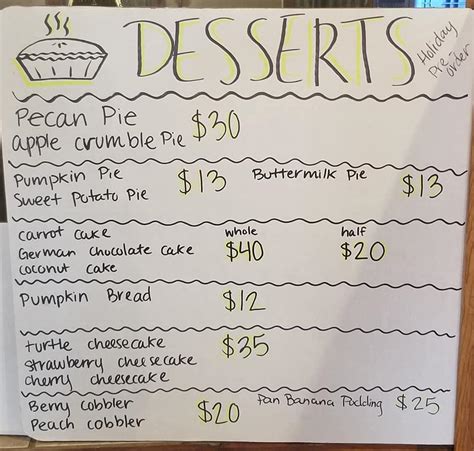 DESSERTS
Holiday
Pie -
order
Pecan Pie
apple crumble Pie $30
Pumpkin Pie
Sweet Potato Pie $13 Buttermilk Pie $13
carrot cake whole half
German chocolate cake $40 $20
coconut cake
Pumpkin Bread $12
turtle cheesecake $35
strawberry cheesecake
cherry cheesecake
Berry cobbler $20 Pan Banana Pudding $25
Peach cobbler